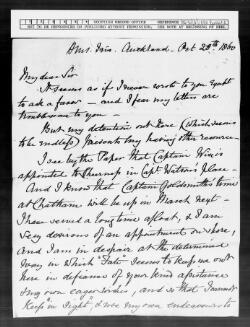 SCOTTISH RECORD OFFICE
Auckland. Oct 20th 1860
My dear Sir
It seems as if I never wrote to you Except
to ask a favor — and I fear my letters are
troublesome to you —
But my detention out here (which seems
to be endless) prevents my having other resource —
I see by the Paper that Captain Wise is
appointed to Sheerness in Capt. Place —
And I know that Captain Goldsmith's time
at Chatham will be up in March next —
I have served a long time afloat, & I am
very desirous of an appointment on shore,
and I am in despair at the determined
way in which "Fate" seems to keep me out
here in defiance of your kind assistance
& my own eager wishes, and so that I cannot
keep "in sight" & use my own endeavours to